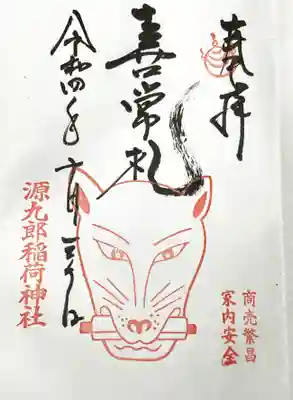 奉拝
喜常札
令和四年
源九郎稲荷神社
商売繁昌
家内安全